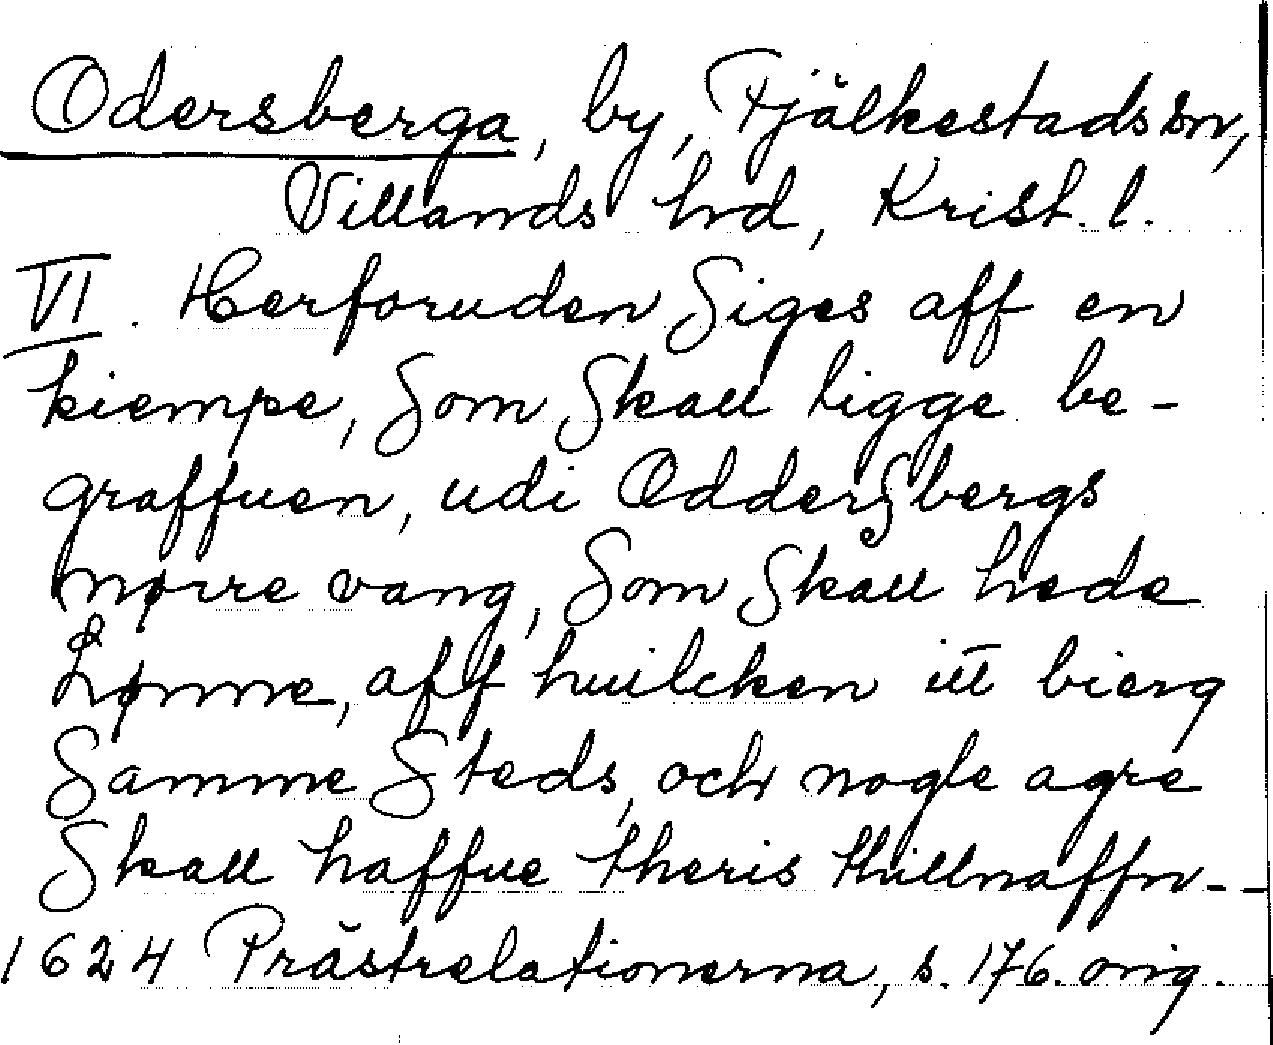 Odersberga, by, Fjälkestads sn,
Villands hd, Krist. l.
VI. Herforuden Siges aff en
kiempe, Som Skall ligge be-
graffuen, udi OdderSbergs
nørre vang, Som Skall hede
Lønne, aff huilcken itt bierg
Samme Steds, och nogle agre
Skall haffue theris thillnaffn--
1624 Prästrelationerna, s. 176. orig.